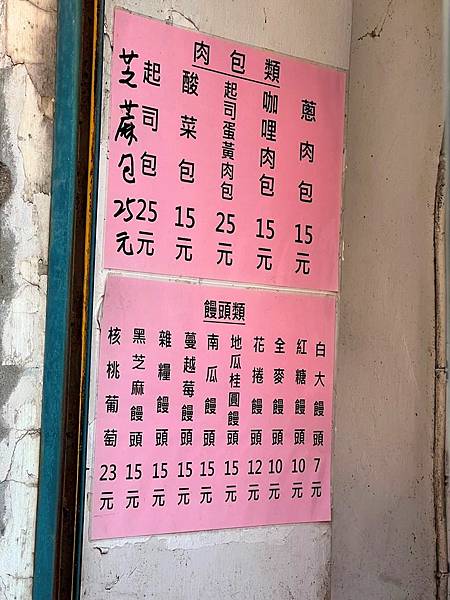 肉包類
蔥肉包 15元
咖哩肉包 15元
起司蛋黃肉包 25元
酸菜包 15元
起司包 25元
芝蔴包 25元
饅頭類
白大饅頭 7元
紅糖饅頭 10元
全麥饅頭 10元
花捲饅頭 12元
地瓜桂圓饅頭 15元
南瓜饅頭 15元
蔓越莓饅頭 15元
雜糧饅頭 15元
黑芝麻饅頭 15元
核桃葡萄 23元